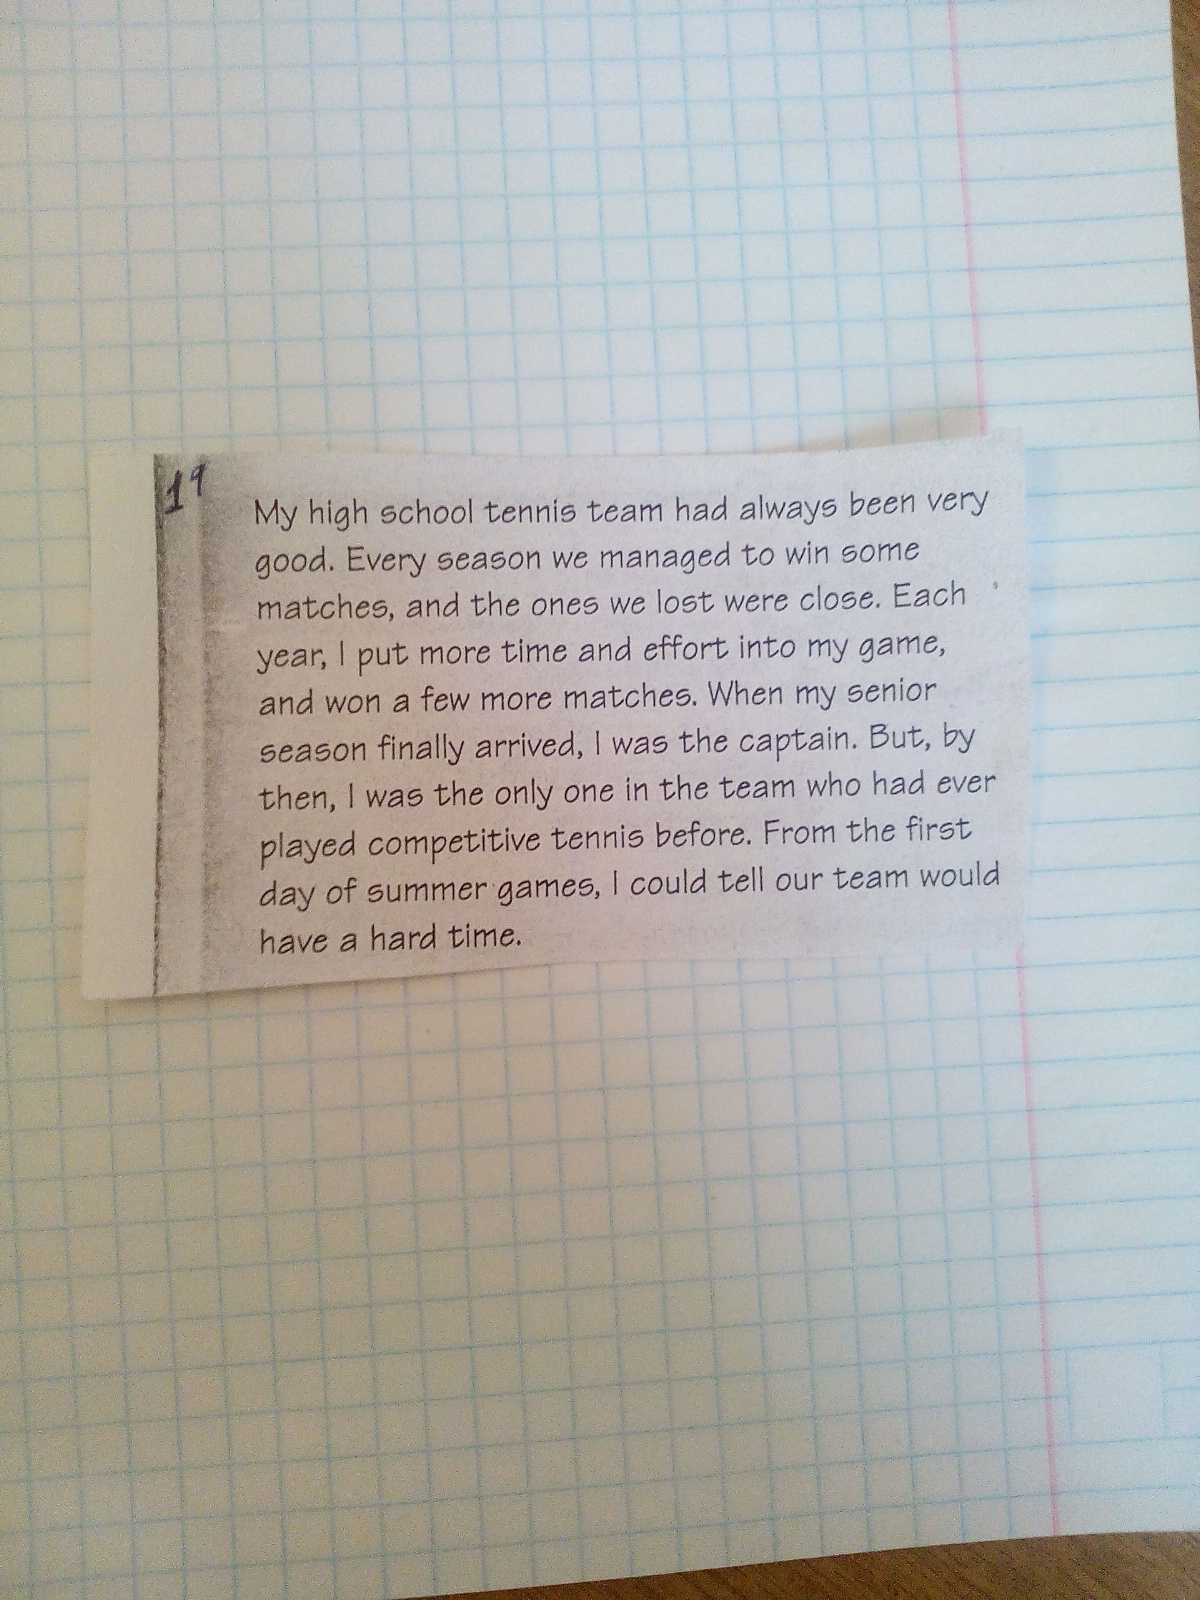 19
My high school tennis team had always been very
good. Every season we managed to win some
matches, and the ones we lost were close. Each
year, I put more time and effort into my game,
and won a few more matches. When my senior
season finally arrived, I was the captain. But, by
then, I was the only one in the team who had ever
played competitive tennis before. From the first
day of summer games, I could tell our team would
have a hard time.